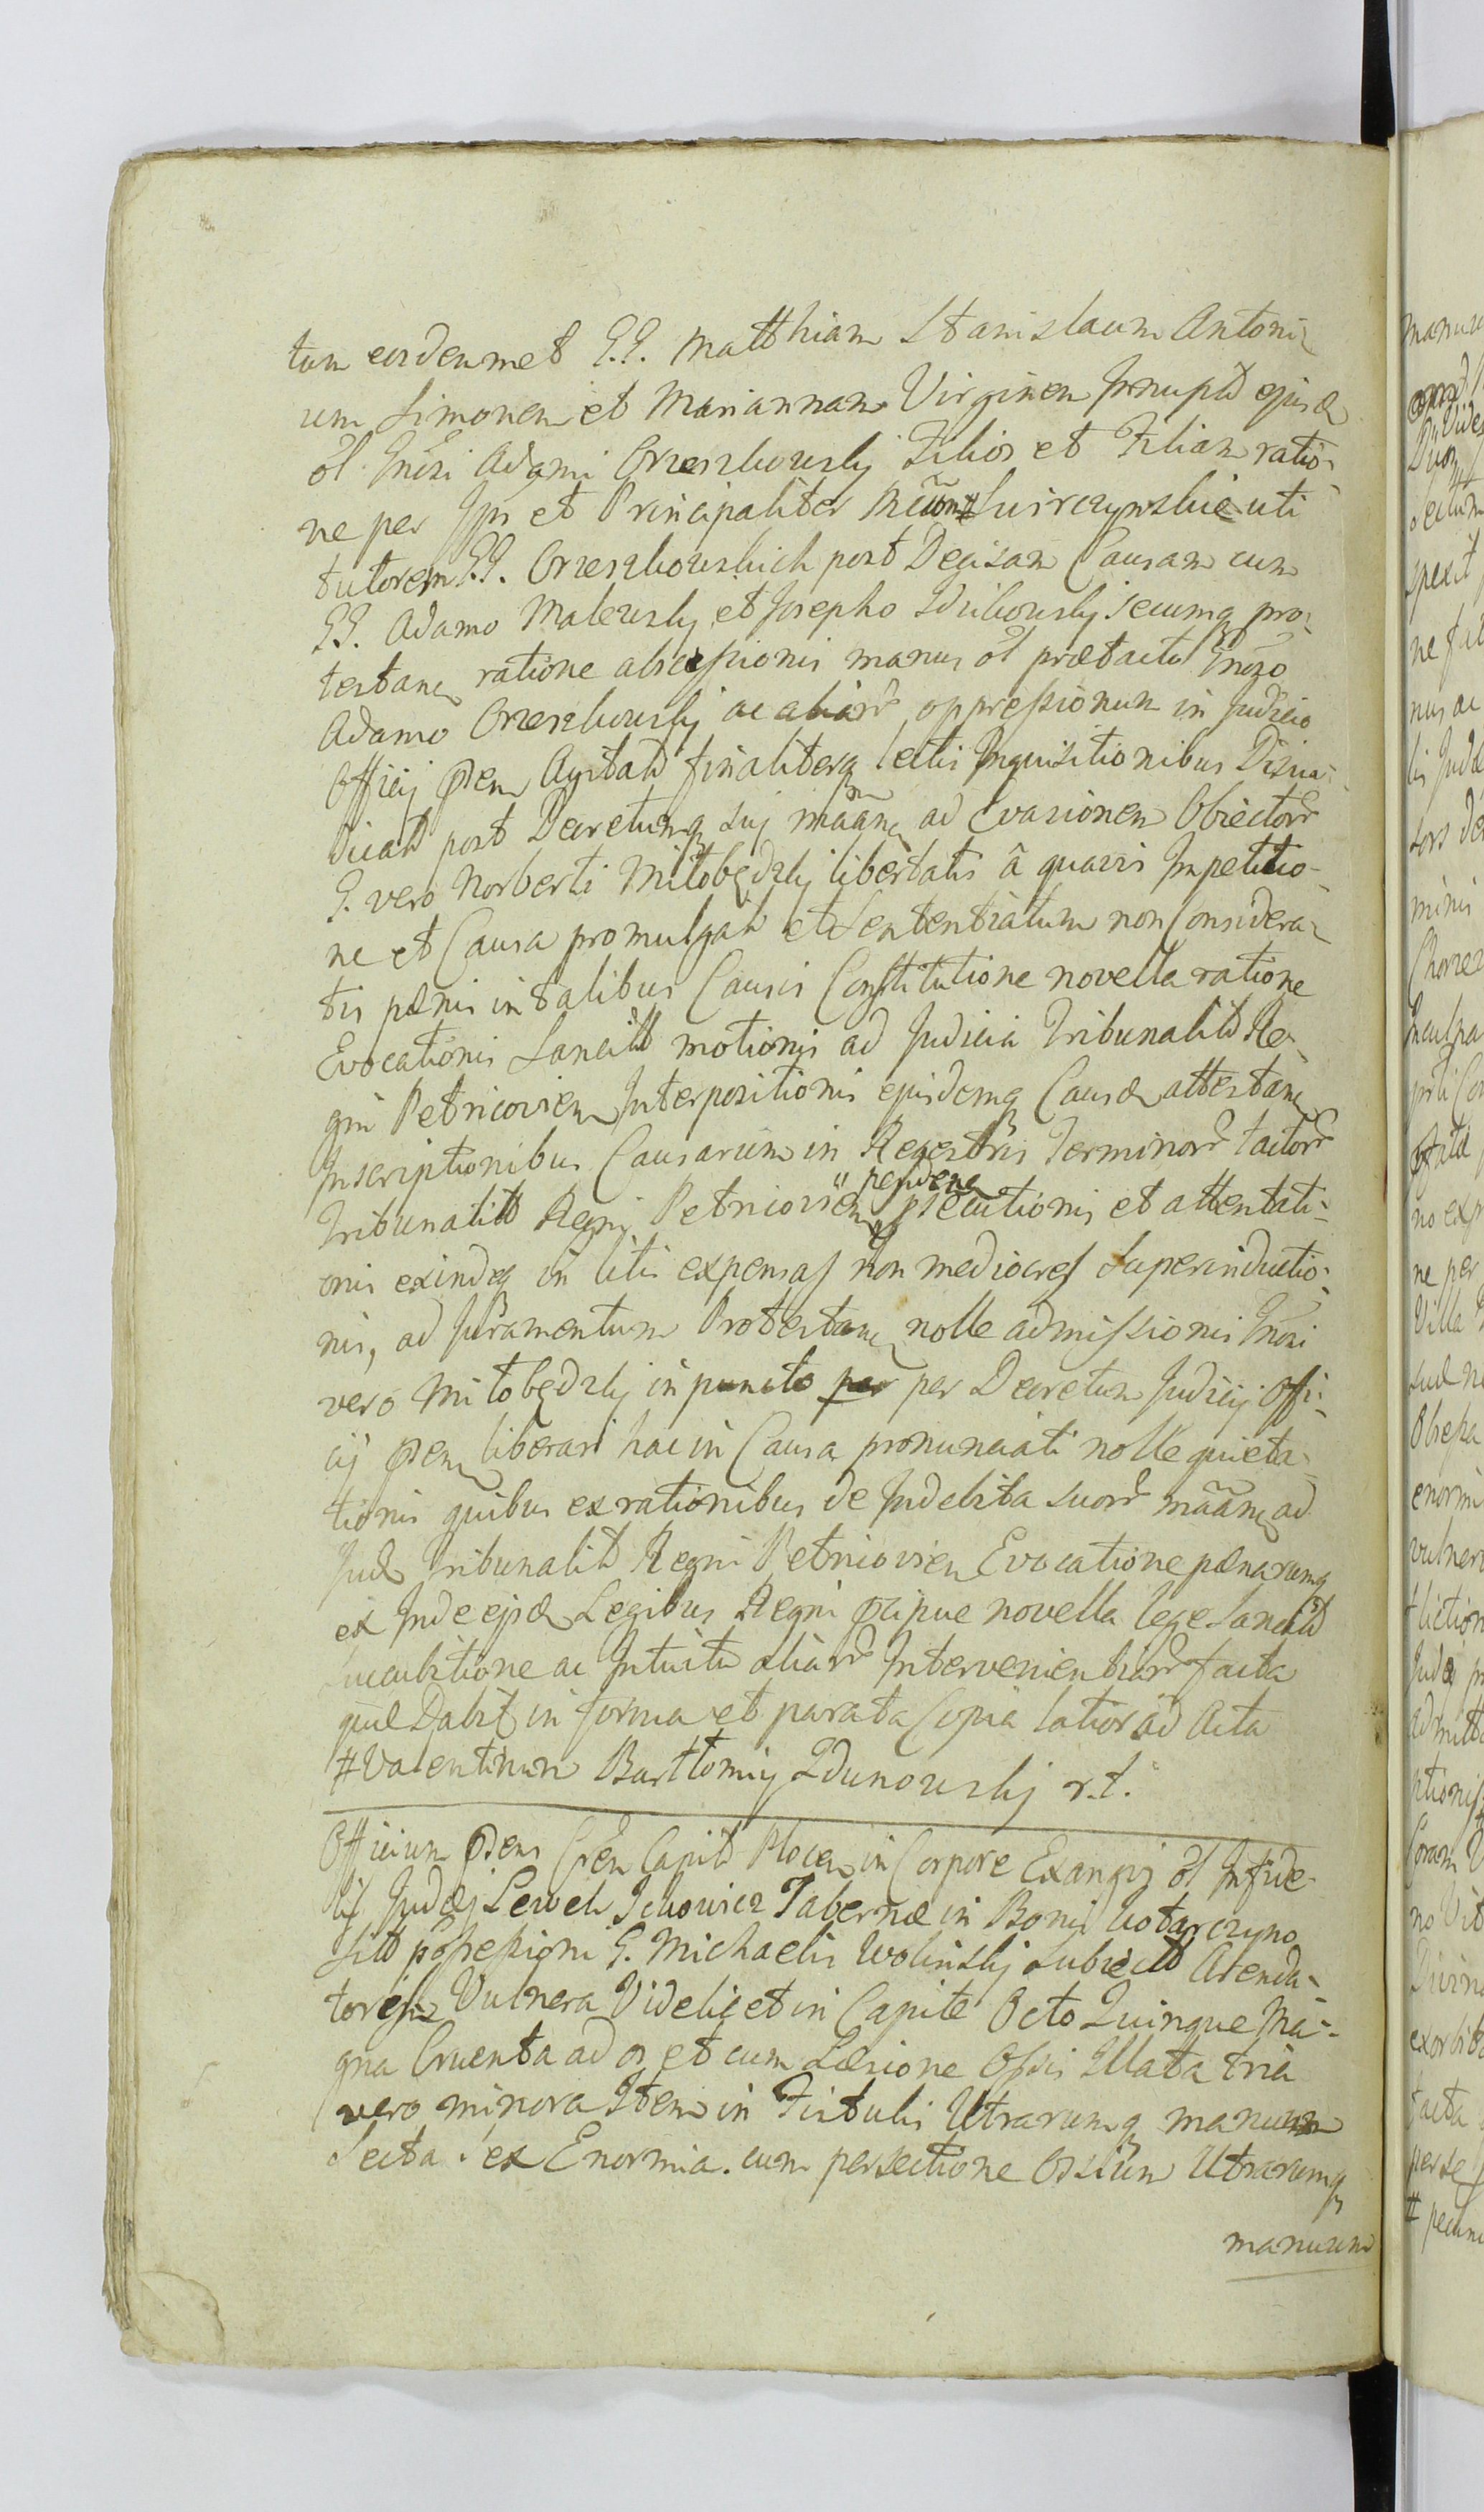 tum eosdemmet G.G. Matthiam Stanislaum Antoni-
um Simonem et Mariannam Virginem Innupta ejusd
ol. Gnosi Adami Orzeszkowsky Filios et Filiam ratio-
ne per Ips et Principaliter Mcum # Swirczynskie uti
tutorem G.G. Orzeszkowskich post Decisam Causam cum
G.G. Adamo Malewsky et Josepho Dzikowsky secumq pro-
testanq ratione abscissionis manus ol prætactu Gnoso
Adamo Orzeszkowsky ac aliarr oppressionum in Judicio
Officij Psen Agitatt finaliterq lectis Inquisitionibus Disiu-
dicatt post Decretumq suj mãanq ad Evasionem Obiectorr
G. vero Norberti Miłobędzky libertatis â quavis Impetitio-
ne et Causa promulgatt et Sententiatum non Considera-
tis pænis in talibus Causis Constitutione novella ratione
Evocationis Sancitt motionis ad Judicia Tribunalitt Re-
gni Petricovien Interpositionis ejusdemq Causæ attestanq
Inscriptionibus Causarum in Regestris Terminorr tactorr
pendenq
Tribunalitt Regni Petricovien psecutionis et attentati-
onis exindeq in litis expensas non mediocres Superinductio-
nis, ad Juramentum Protestanq nolle admissionis Gnosi
vero Miłobędzky in puncto per per Decretum Judicij Offi-
cij Psen liberari hac in Causa pronunciati nolle quieta-
tionis quibus ex rationibus de Indebita suorr mãanq ad
Jud Tribunalitt Regni Petricovien Evocatione pænarumq
ex Inde ejsd Legibus Regni Pcipue novella lege Sancitt
Succubitione ac Intuitu aliarr Intervenientiarr facta
quæ Dabit in forma et parata Copia latior ad Acta
# Valentinum Bartłomiy Zdunowsky r.t.
Officium Psens Cren Capitt Plocen in Corpore Exangvi ol Infide-
lis Judæj Lewek Ickowicz Tabernæ in Bonis Kotarczyno
sitt possessioni G. Michaelis Wolinsky Subiectt Arenda-
toris Vulnera Videlicet in Capite Octo Quinque Ma-
gna Cruenta ad os et cum Læsione Ossis Illata tria
vero minora Item in Fistulis Utrarumq manuum
Secta sex Enormia. cum persectione Ossium Utrarumq
manuum